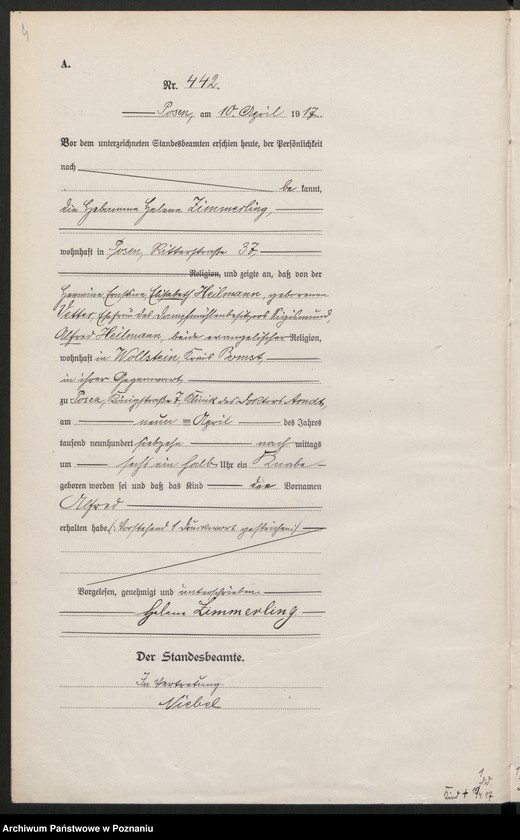 4
A.
Nr. 442.
Posen, am 10. April 1917.
Vor dem unterzeichneten Standesbeamten erschien heute, der Persönlichkeit
nach
be kannt,
die Hebamme Helene Zimmerling,
wohnhaft in Posen, Ritterstraße 37,
Religion, und zeigte an, daß von der
Hermine Ernstine Elisabeth Heilmann, geborenen
Vetter, Ehefrau des Dampfmühlenbesitzers Sigismund,
Alfred Heilmann, beide evangelischer Religion,
wohnhaft in Wollstein, Kreis Bomst,
in ihrer Gegenwart
zu Posen, Königstraße 7, Klinik des Doktors Arndt,
am neun ten April des Jahres
tausend neunhundert siebzehn nach mittags
um sechs ein halb Uhr ein Knabe
geboren worden sei und daß das Kind die Vornamen
Alfred
erhalten habe. (: Vorstehend 1 Druckwort gestrichen :)
Vorgelesen, genehmigt und unterschrieben.
Helene Zimmerling.
Der Standesbeamte.
In Vertretung.
Niebel
Kind +
Archiwum Państwowe w Poznaniu